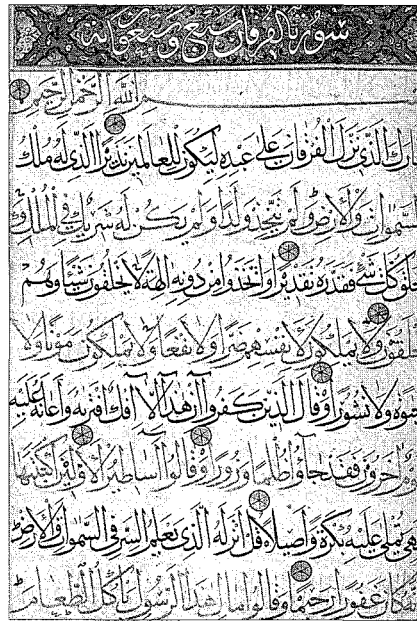 سورة الفرقان سبع وسبعون آية
بسم الله الرحمن الرحيم
تبارك الذي نزل الفرقان على عبده ليكون للعالمين نذيرا الذي له ملك
السموات والارض ولم يتخذ ولدا ولم يكن له شريك في الملك و
خلق كل شيء فقدره تقديرا واتخذوا من دونه الهة لا يخلقون شيئا وهم
يخلقون ولا يملكون لانفسهم ضرا ولا نفعا ولا يملكون موتا ولا
حيوة ولا نشورا وقال الذين كفروا ان هذا الا افك افتريه واعانه عليه
قوم اخرون فقد جاؤا ظلما وزورا وقالوا اساطير الاولين اكتتبها
فهي تملى عليه بكرة واصيلا قل انزله الذي يعلم السر في السموات والارض
كان غفورا رحيما وقالوا مال هذا الرسول ياكل الطعام